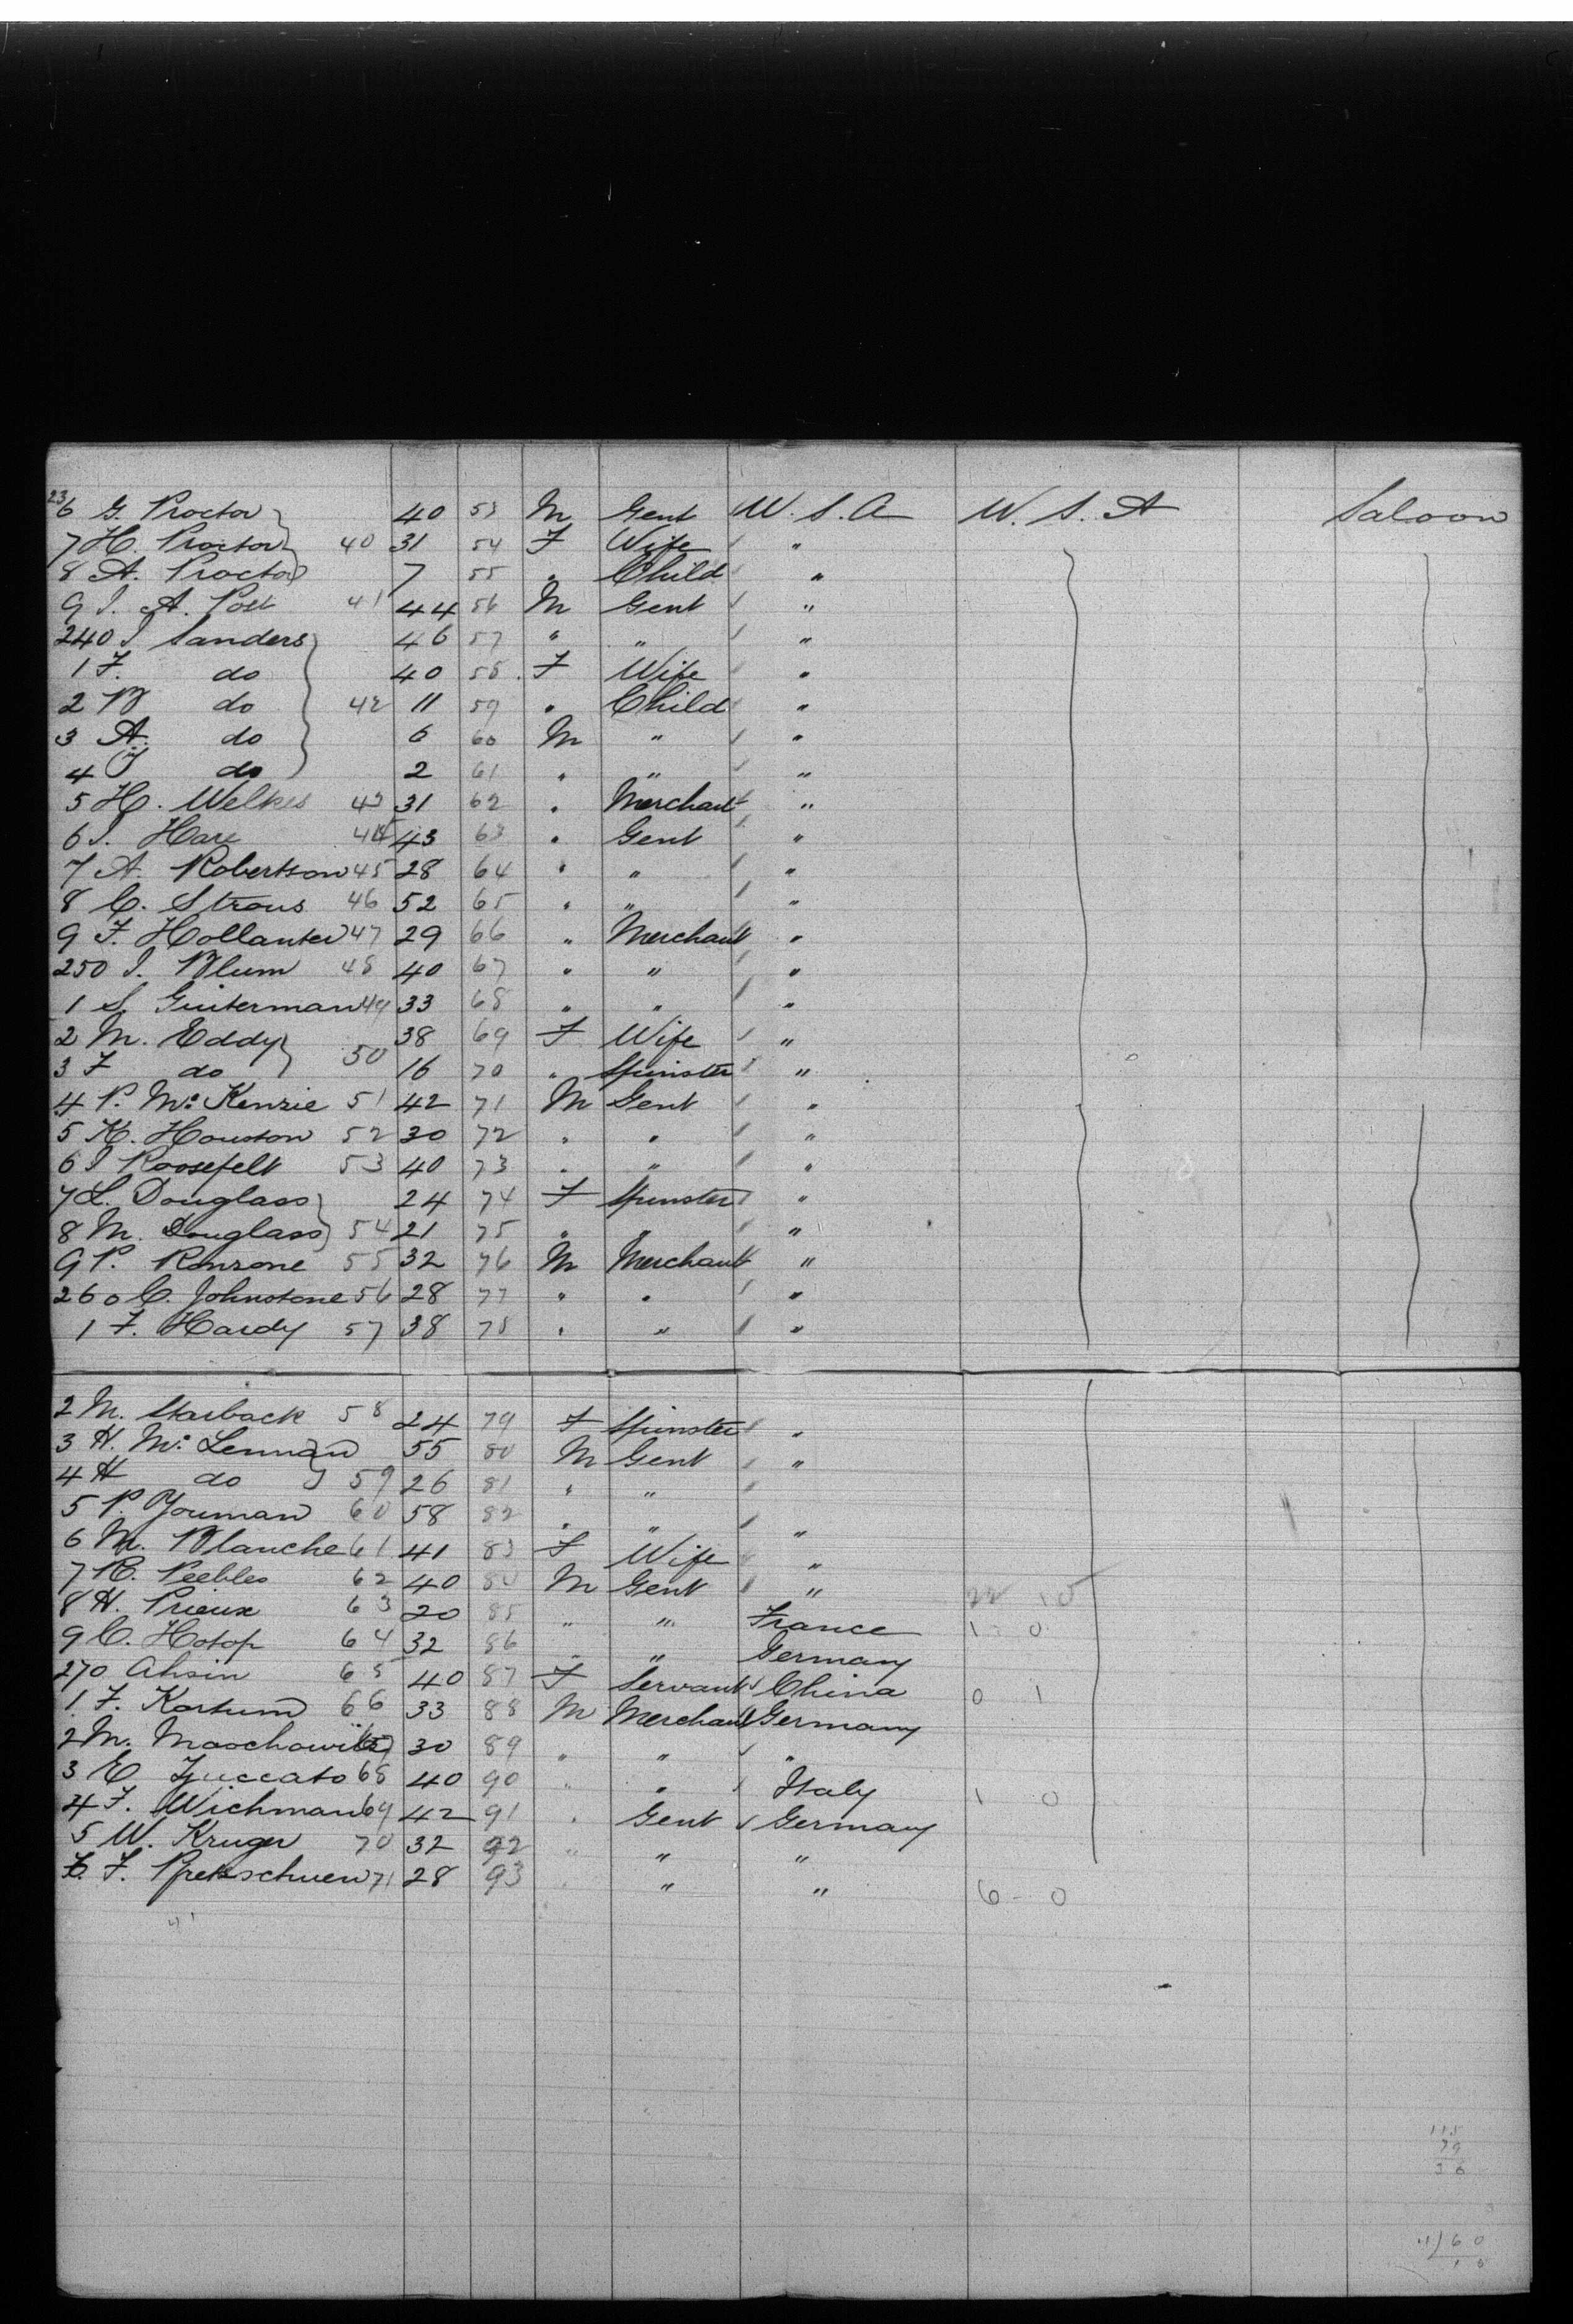 236 G. Proctor 40 53 M Gent U.S.A U.S.A Saloon
7 H. Proctor 40 31 54 F Wife "
8 A. Proctor 7 55 " Child "
9 J. A. Post 41 44 56 M Gent "
240 J Sanders 46 57 " " "
1 F. do 40 58 F Wife "
2 B do 42 11 59 " Child "
3 A. do 6 60 M " "
4 J do 2 61 " " "
5 H. Welkes 43 31 62 " Merchant "
6 J. Hare 44 43 63 " Gent "
7 A. Robertson 45 28 64 " " "
8 C. Strous 46 52 65 " " "
9 F. Hollanter 47 29 66 " Merchant "
250 J. Blum 48 40 67 " " "
1 S. Guiterman 49 33 68 " " "
2 M. Eddy 38 69 F Wife "
3 F do 50 16 70 " Spinster "
4 P. McKenzie 51 42 71 M Gent "
5 H. Houston 52 30 72 " " "
6 J Roosefelt 53 40 73 " " "
7 L. Douglass 24 74 F Spinster "
8 M. Douglass 54 21 75 " " "
9 P. Ronzone 55 32 76 M Merchant "
260 C. Johnstone 56 28 77 " " "
1 F. Hardy 57 38 78 " " "
2 M. Starback 58 24 79 F Spinster "
3 H. McLennan 55 80 M Gent "
4 H do 59 26 81 " "
5 P. Youman 60 58 82 " " "
6 M. Blanche 61 41 83 F Wife "
7 R. Peebles 62 40 84 M Gent " 22 10
8 H. Prieux 63 20 85 " " France 1 0
9 C. Hotop 64 32 86 " " Germany
270 Ahsin 65 40 87 F Servant China 0 1
1 F. Kortum 66 33 88 M Merchant Germany
2 M. 67 30 89 " " "
3 E Zuccato 68 40 90 " " Italy 1 0
4 F. Wichman 69 42 91 " Gent Germany
5 W. Kruger 70 32 92 " " "
6. F. 71 28 93 " " " 6 - 0
115
79
36